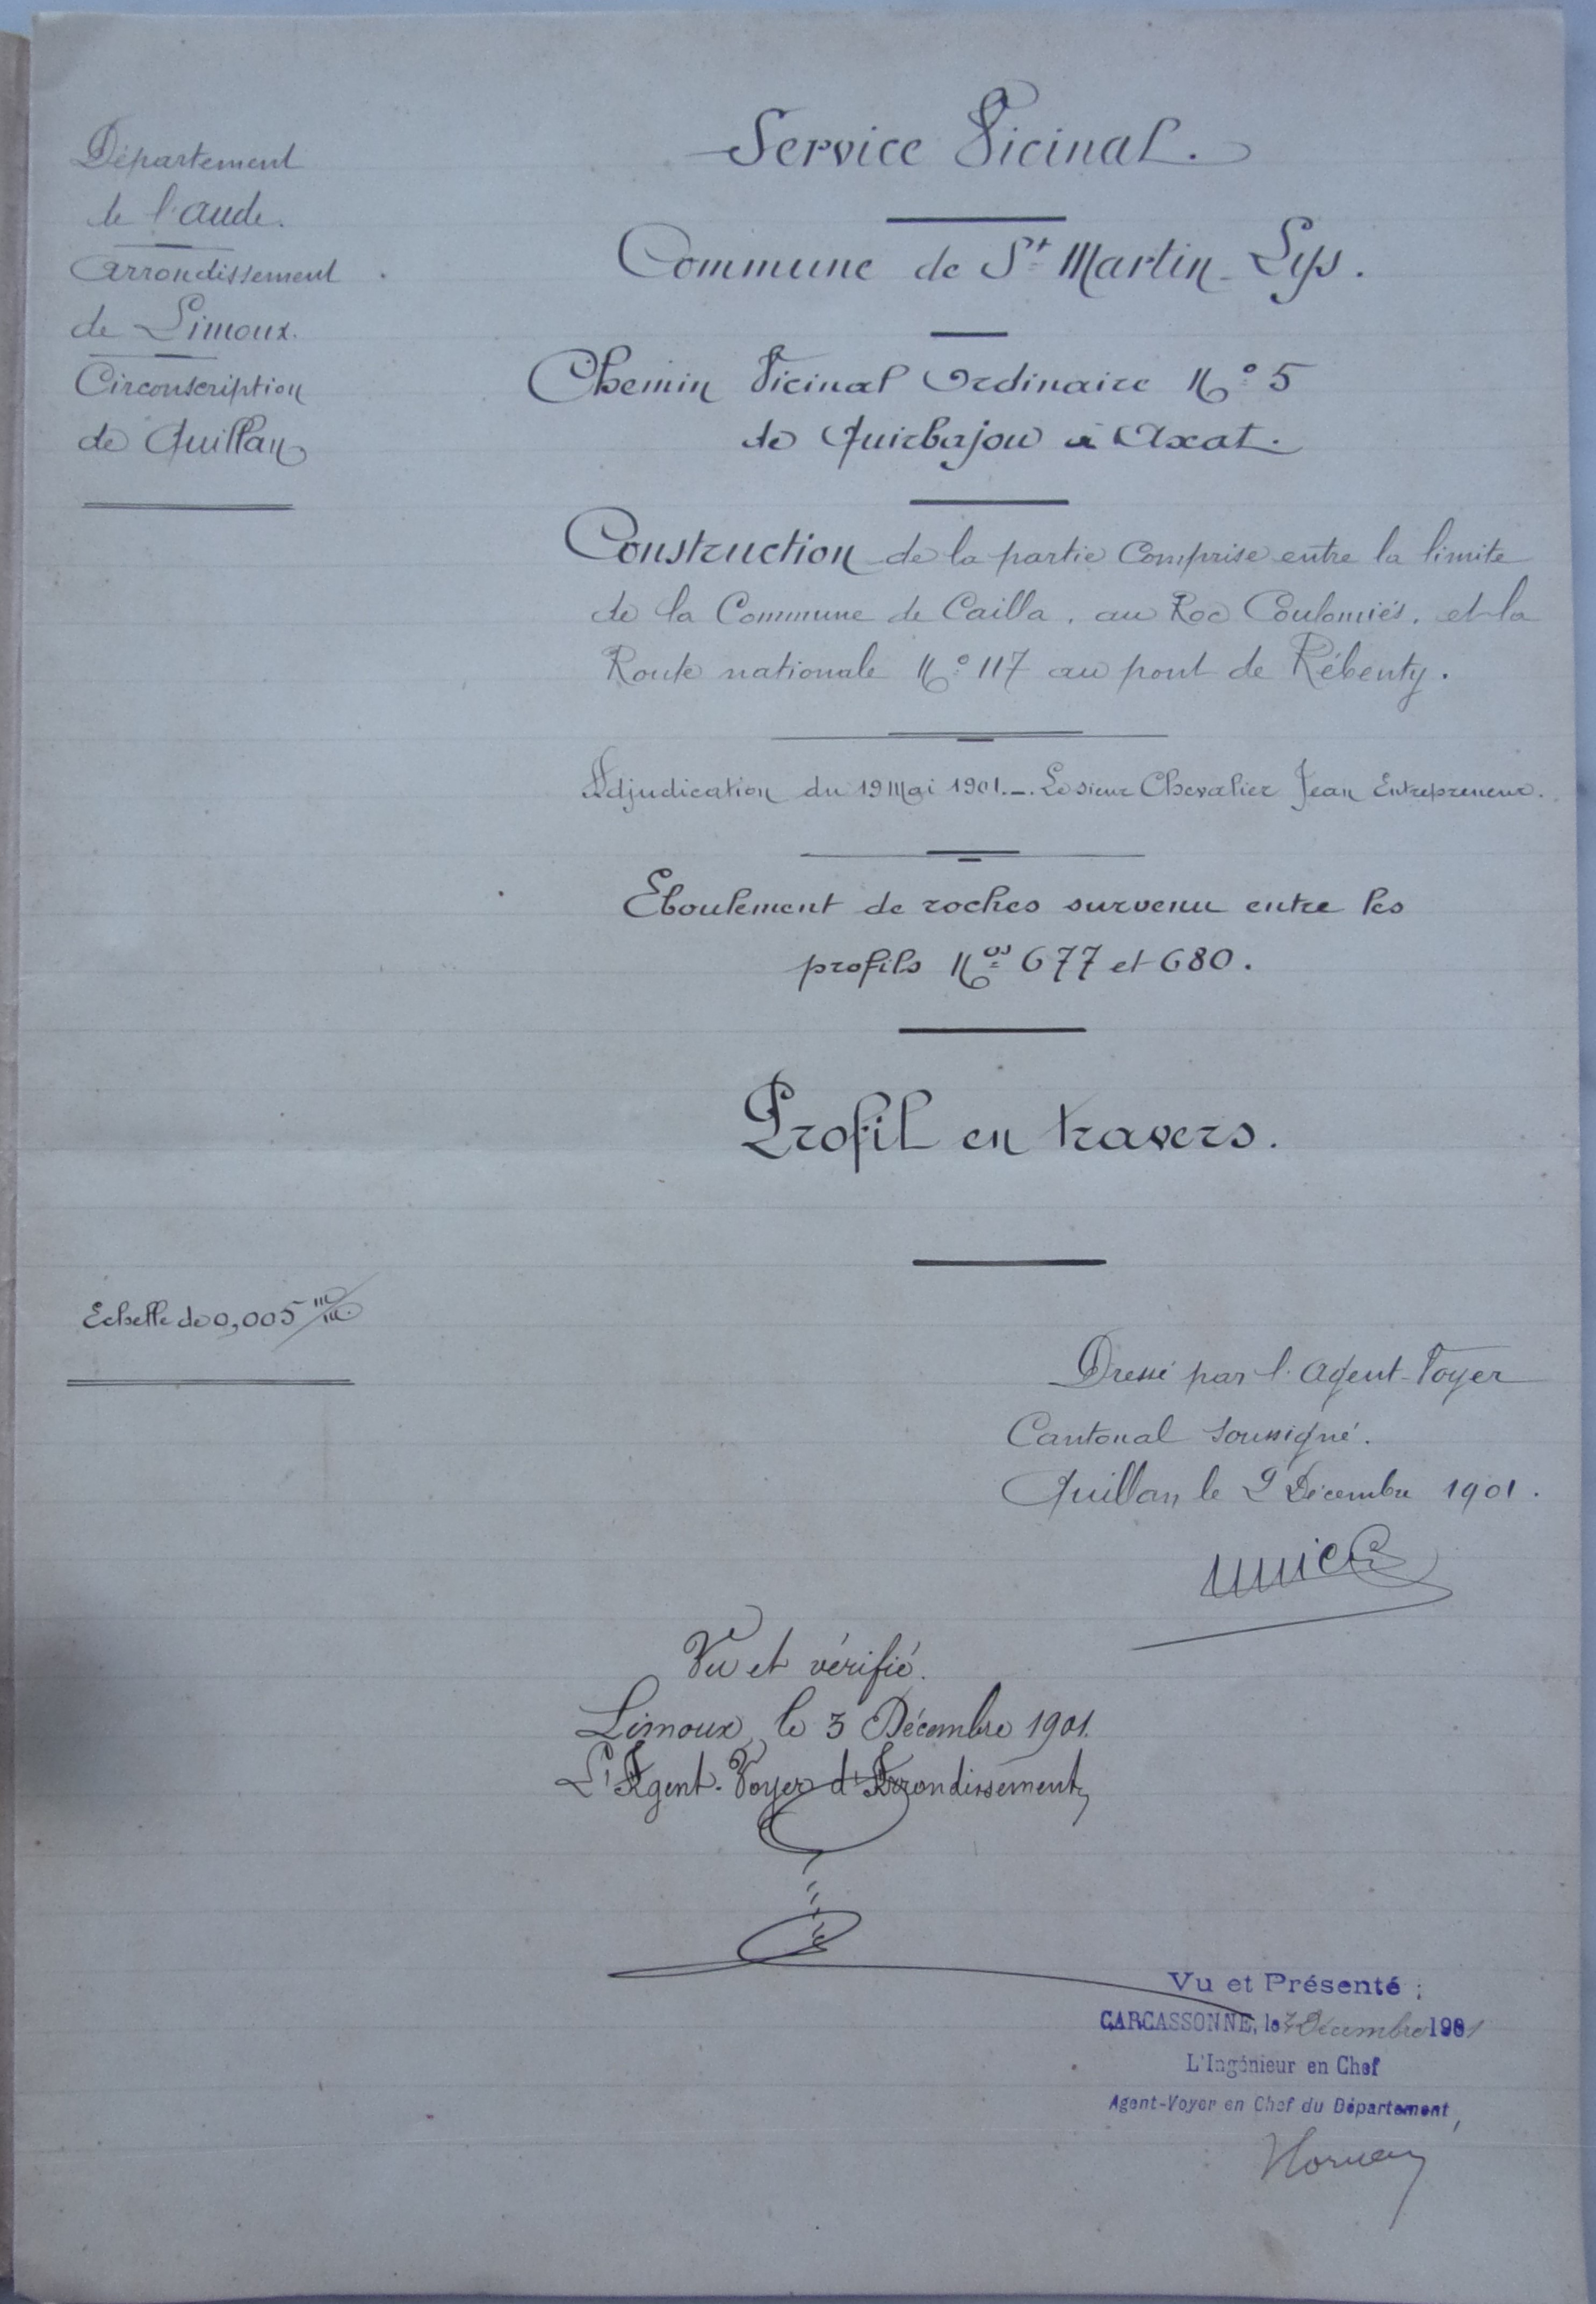 Département
de l'Aude.
Arrondissement
de Limoux.
Circonscription
de Quillan
Service Vicinal.
Commune de St Martin-Lys.
Chemin Vicinal Ordinaire No 5
de Quirbajou à Axat.
Construction de la partie comprise entre la limite
de la Commune de Cailla, au Roc Coulomiés, et la
Route nationale No 117 au pont de Rébenty.
Adjudication du 19 Mai 1901._. Le sieur Chevalier Jean Entrepreneur.
Eboulement de roches survenu entre les
profils Nos 677 et 680.
Profil en travers.
Echelle de 0,005 m/m.
Dressé par l'Agent-Voyer
Cantonal soussigné.
Quillan, le 2 Décembre 1901.
Vu et vérifié.
Limoux, le 3 Décembre 1901.
L'Agent-Voyer d'Arrondissement,
Vu et Présenté ;
CARCASSONNE, le Décembre 1901
L'Ingénieur en Chef
Agent-Voyer en Chef du Département,